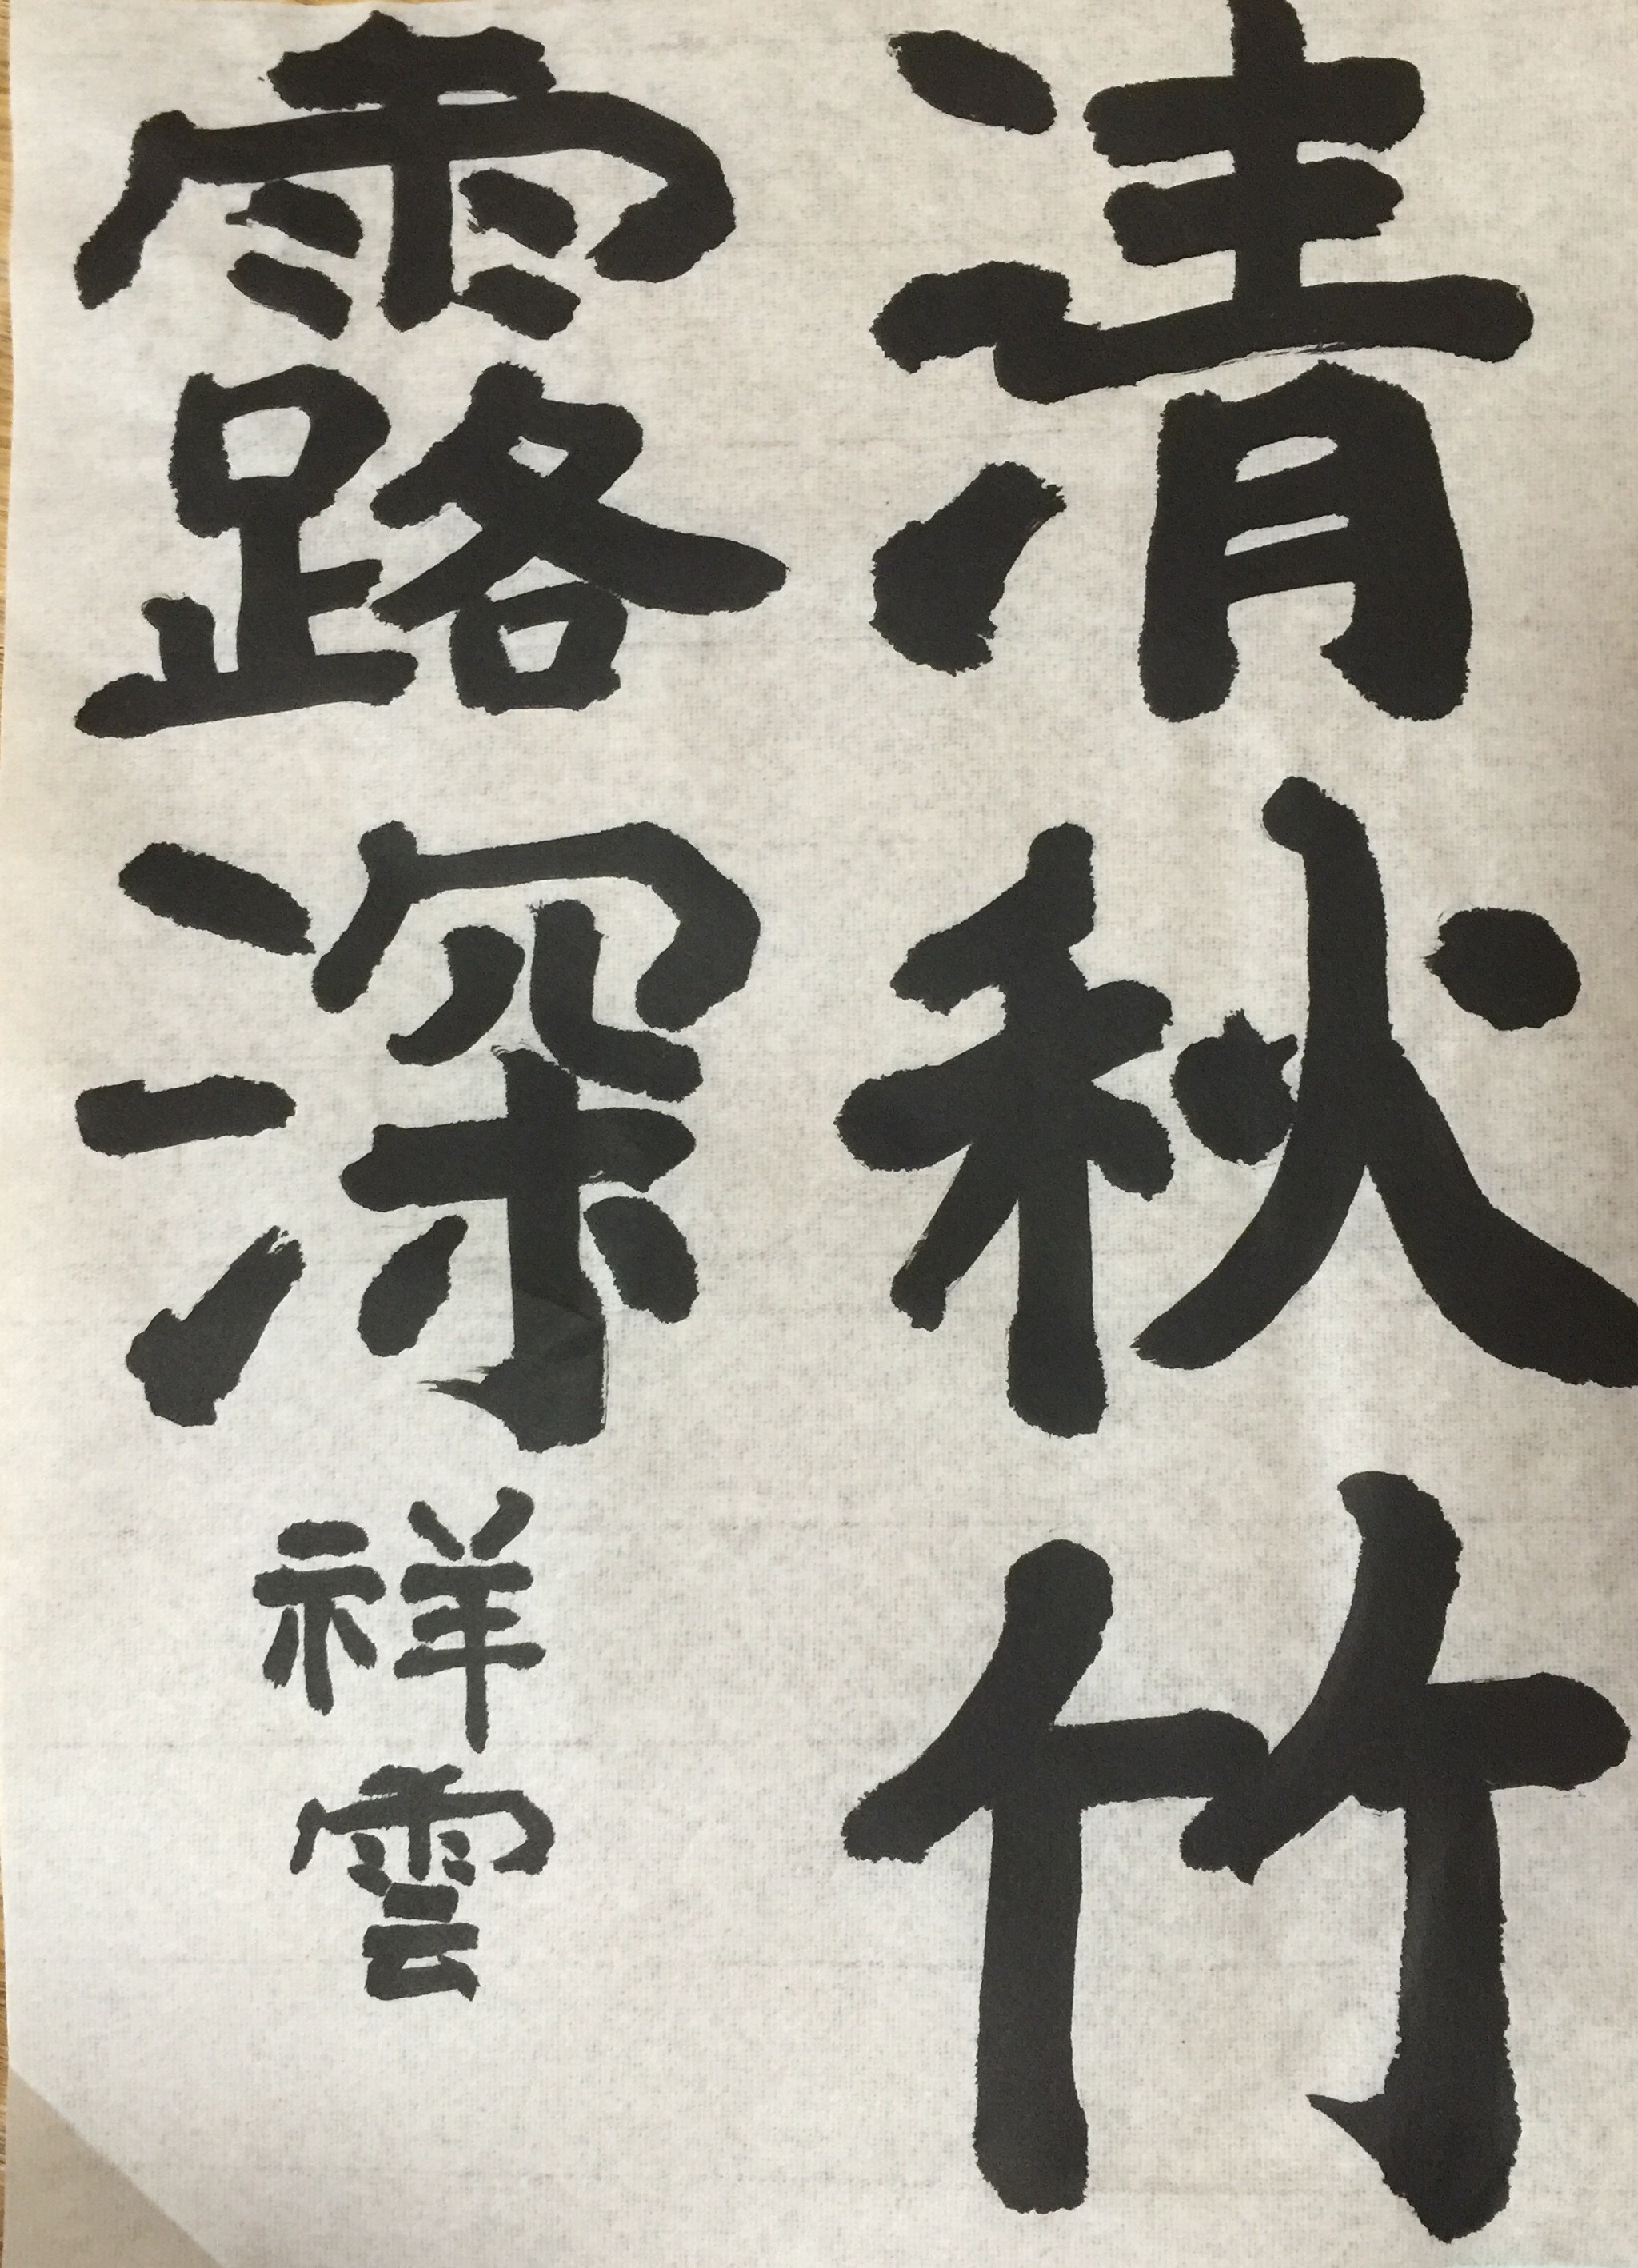 清秋竹
露深
祥雲